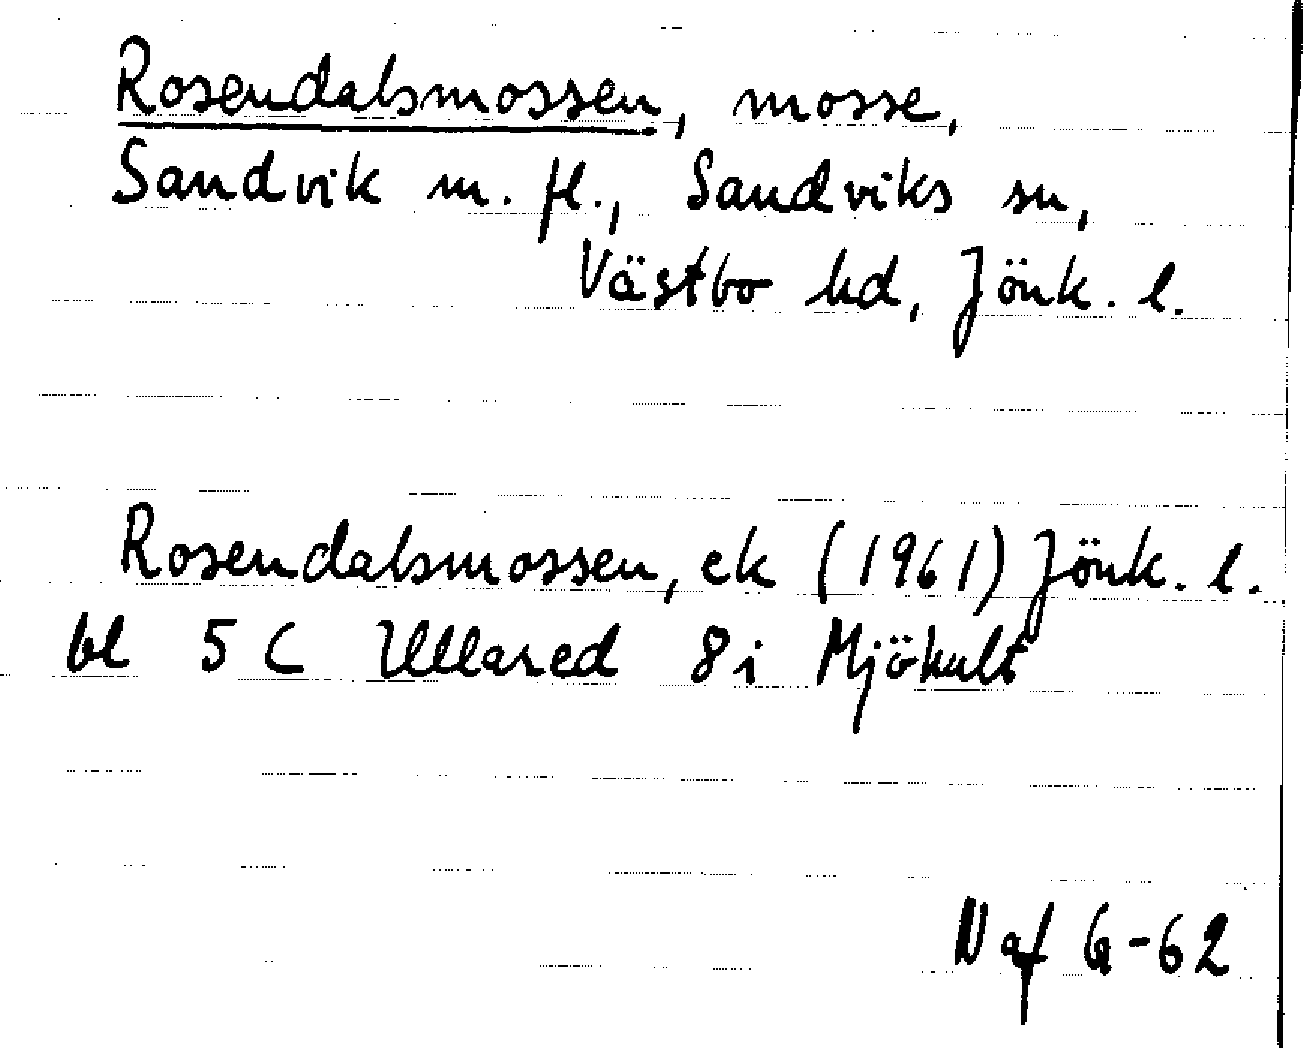 Rosendalsmossen, mosse,
Sandvik m. fl., Sandviks sn,
Västbo hd, Jönk. l.
Rosendalsmossen, ek (1961) Jönk. l.
bl 5 C Ullared 8i Mjöhult
N af G-62